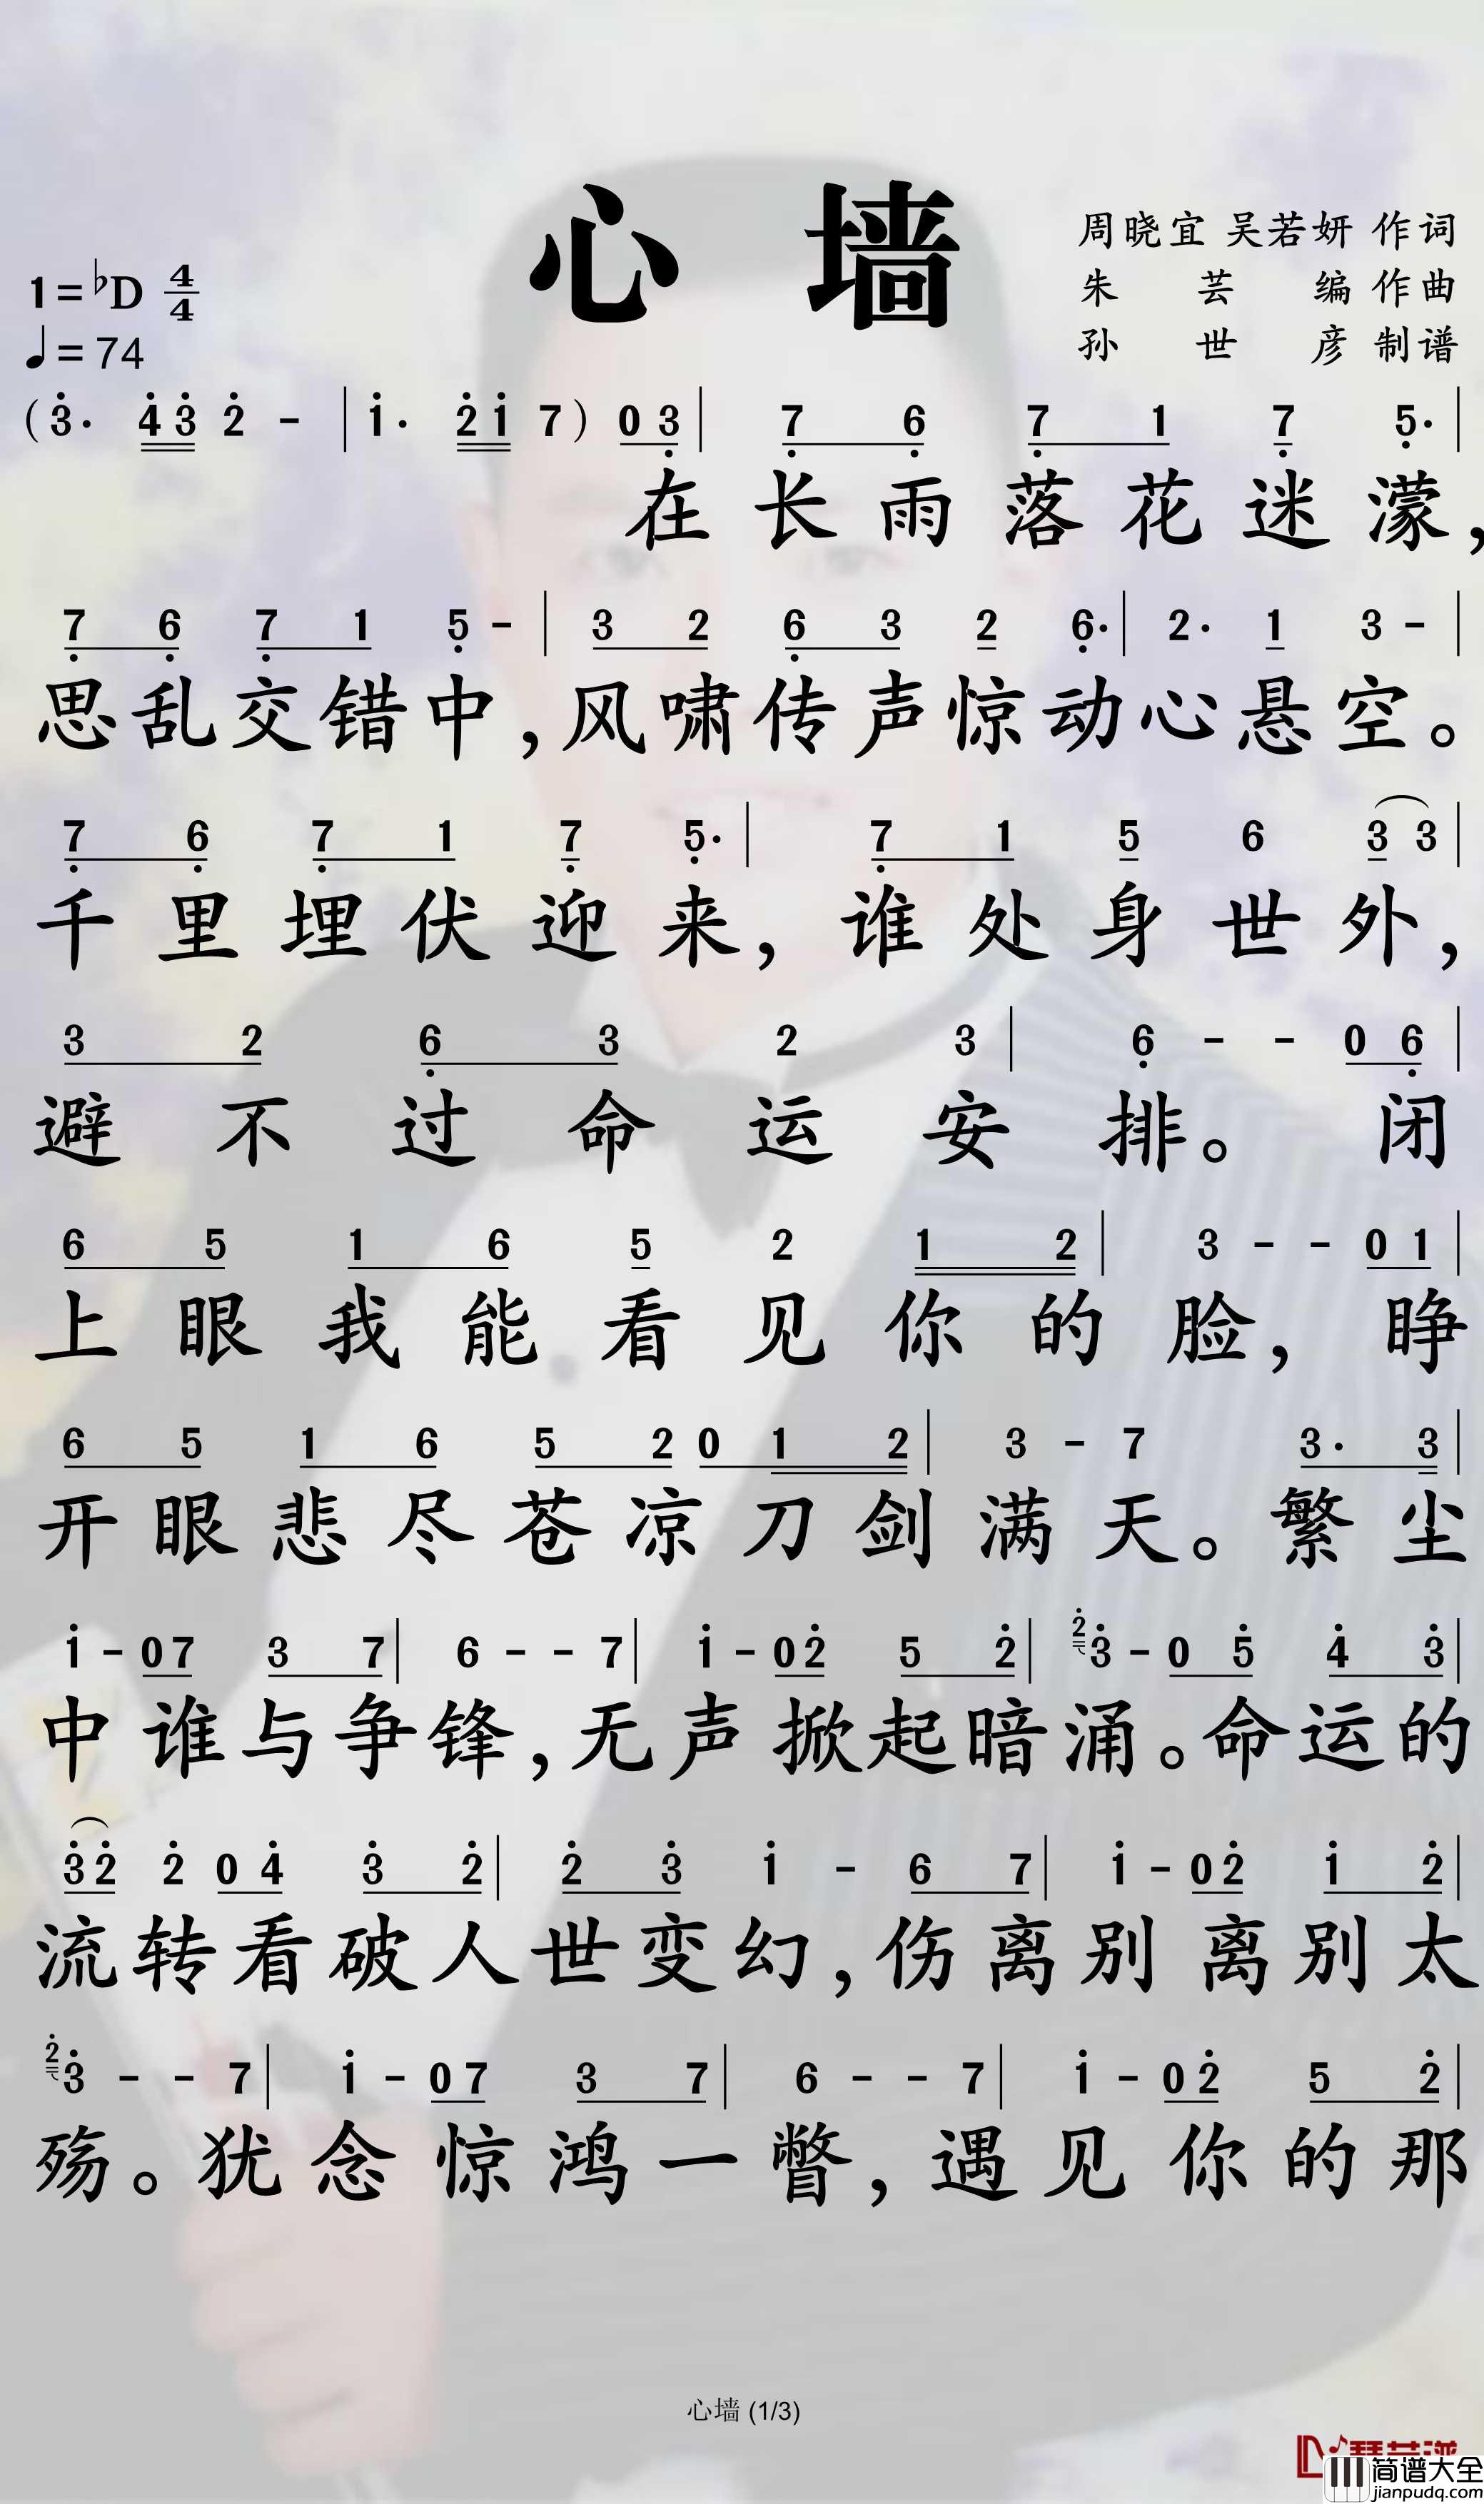 心 墙
周晓宜 吴若妍 作词
1=♭D 4/4
朱芸编 作曲
♩=74
孙世彦 制谱
(3̇· 4̇3̇ 2̇ - | 1̇· 2̇1̇ 7) 0 3̣ | 7̣ 6̣ 7̣ 1 7̣ 5̣· |
在长雨落花迷濛,
7̣ 6̣ 7̣ 1 5̣ - | 3 2 6̣ 3 2 6̣· | 2· 1 3 - |
思乱交错中,风啸传声惊动心悬空。
7̣ 6̣ 7̣ 1 7̣ 5̣· | 7̣ 1 5 6 3 3 |
千里埋伏迎来,谁处身世外,
3 2 6̣ 3 2 3 | 6̣ - - 0 6̣ |
避不过命运安排。闭
6 5 1 6 5 2 1 2 | 3 - - 0 1 |
上眼我能看见你的脸,睁
6 5 1 6 5 2 0 1 2 | 3 - 7 3· 3 |
开眼悲尽苍凉刀剑满天。繁尘
1̇ - 0 7 3 7 | 6 - - 7 | 1̇ - 0 2̇ 5 2̇ | 2̇ 3̇ - 0 5̇ 4̇ 3̇ |
中谁与争锋,无声掀起暗涌。命运的
3̇ 2̇ 2̇ 0 4̇ 3̇ 2̇ | 2̇ 3̇ 1̇ - 6 7 | 1̇ - 0 2̇ 1̇ 2̇ |
流转看破人世变幻,伤离别离别太
2̇ 3̇ - - 7 | 1̇ - 0 7 3 7 | 6 - - 7 | 1̇ - 0 2̇ 5 2̇ |
殇。犹念惊鸿一瞥,遇见你的那
心墙 (1/3)
简谱大全
jianpudq.com